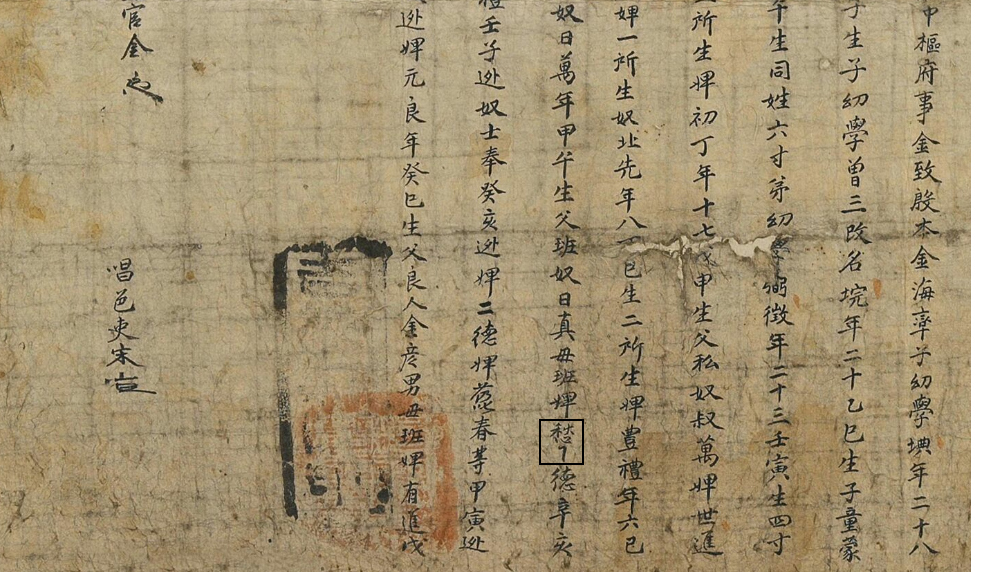 中樞府事金致殷本金海率子幼學年二十八
子生子幼學曾三改名垸年二十乙巳生子童蒙
午生同姓六寸弟幼學弼徵年二十三壬寅生四寸
所生婢初丁年十七戊申生父私奴叔萬婢世進
婢一所生奴北先年八丁巳生二所生婢豊禮年六己
奴日萬年甲午生父班奴日真毋班婢德辛亥
禮壬子逃奴士奉癸亥逃婢二德婢春等甲寅逃
逃婢元良年癸巳生父良人金彦男毋班婢有進戊
官金
唱邑吏宋